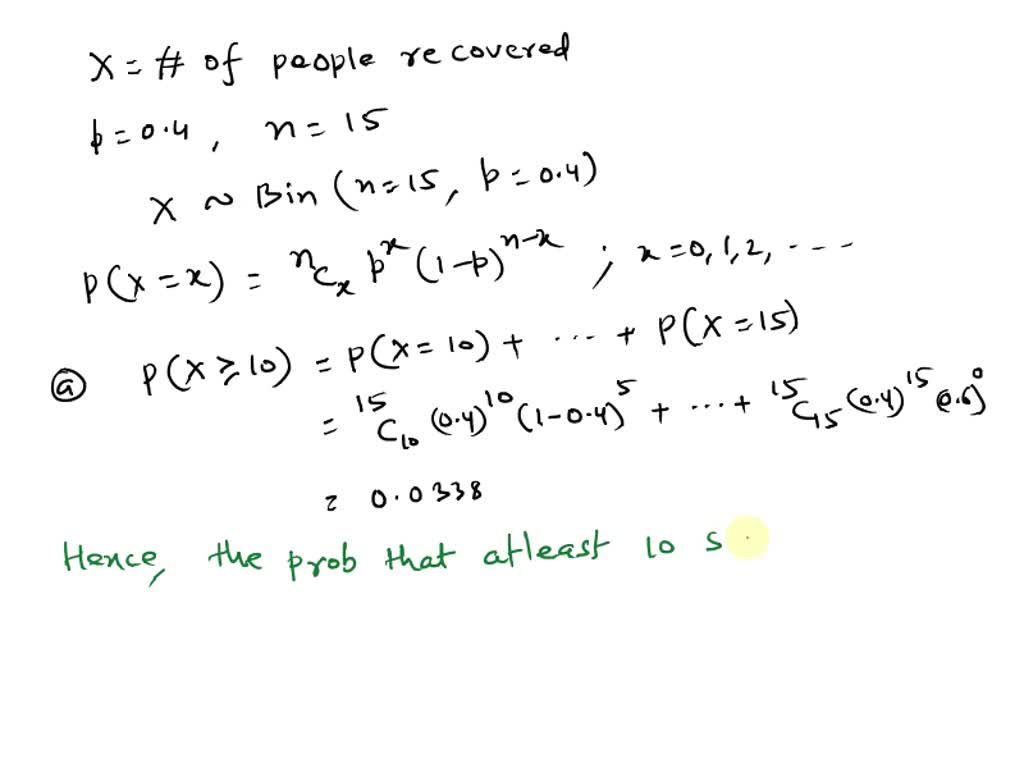 X = # of people recovered
p = 0.4, n = 15
X ~ Bin (n = 15, p = 0.4)
P(X = x) = ⁿCₓ pˣ (1-p)ⁿ⁻ˣ ; x = 0, 1, 2, ----
ⓐ P(X ≥ 10) = P(X = 10) + ... + P(X = 15)
= ¹⁵C₁₀ (0.4)¹⁰ (1-0.4)⁵ + ... + ¹⁵C₁₅ (0.4)¹⁵ (0.6)⁰
= 0.0338
Hence, the prob that atleast 10 s